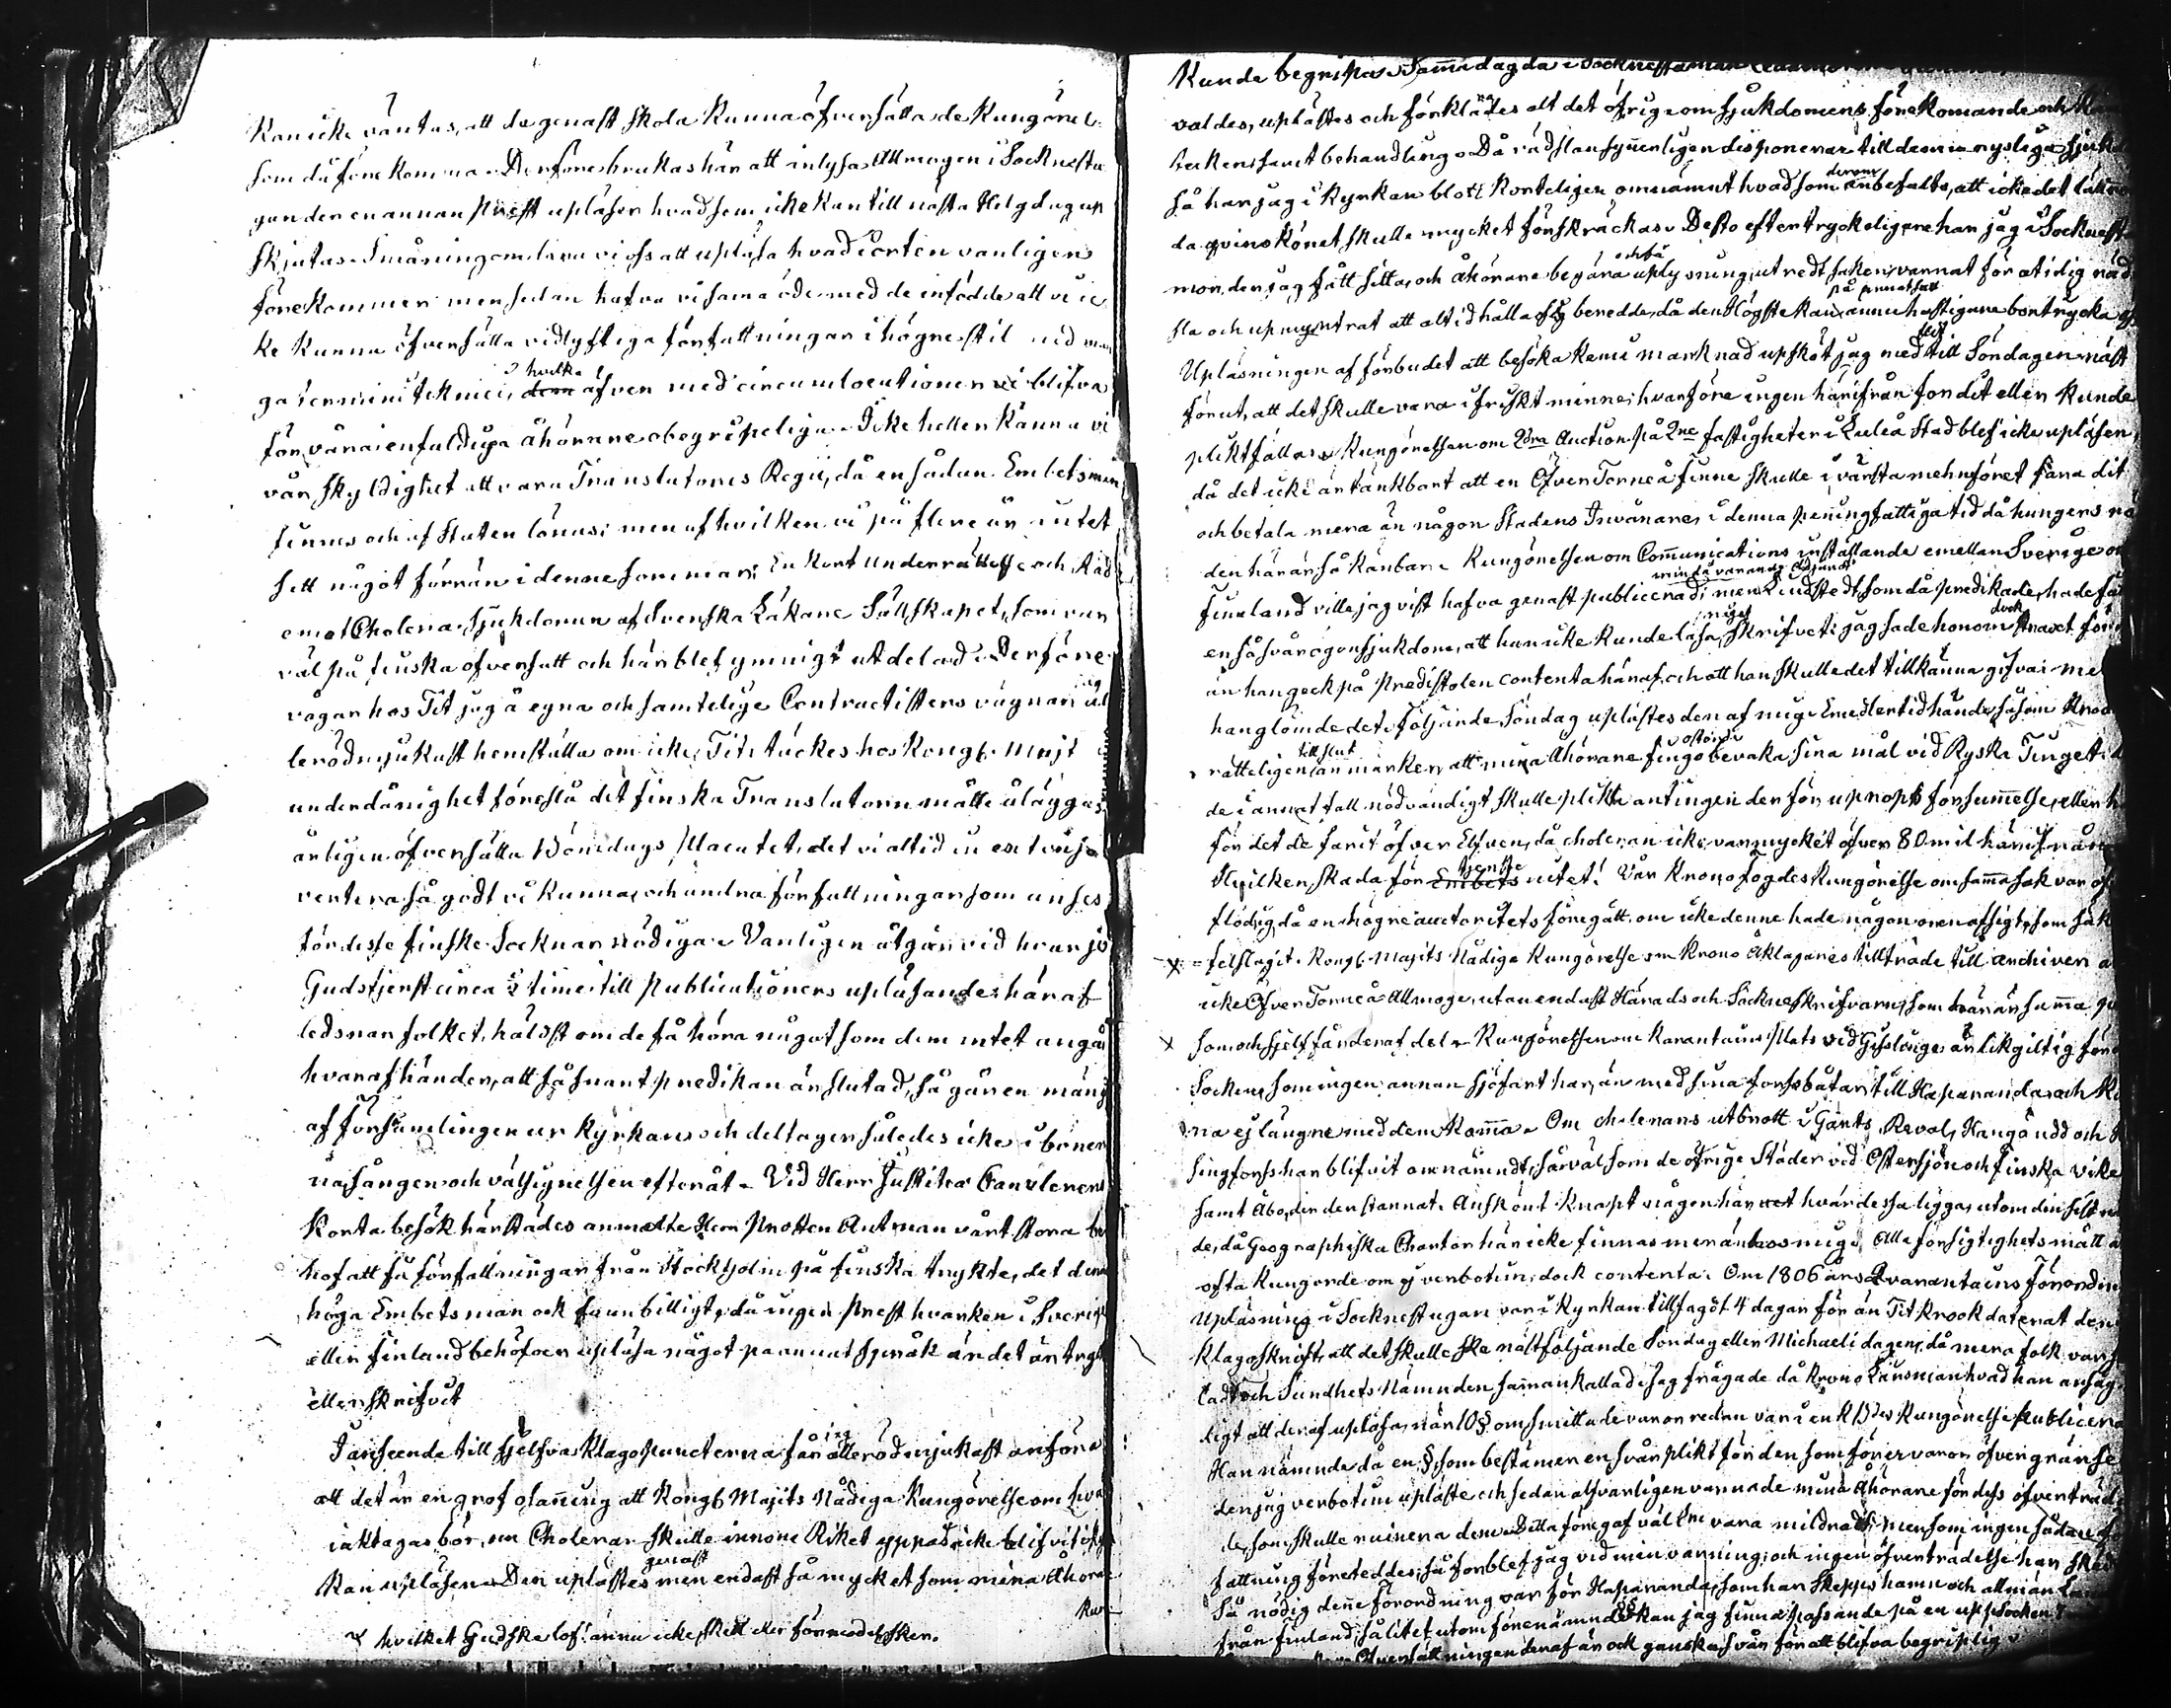 Kan icke väntas, att de genast skola kunna öfversätta de Kungörelser
som då förekomma. Derföre brukas här att inlysa Allmogen i Socknestu
gan der en annan Prest upläser hvad som icke kan till nästa Helgdag up
skjutas. Småningom lära vi oss att upläsa hvad i orten vanligen
förekommer men sedan hafva vi sama öde med de infödde att vi ic
ke kunna öfversätta vidlyftiga författningar i högre stil med mån
ga termini teknici, hvilka äfven med circumlocutioner blifva
för våra enfaldiga åhörare obegripeliga. Icke heller känna vi
vår skyldighet att vara Translatores Regii, då en sådan Embetsman
finnes och af Staten lönas; men af hvilken vi på flere år intet
sett något förrän i denne sommar; En kort Underrättelse och Råd
emot Cholera Sjukdomen af Svenska Läkare Sällskapet, som var
väl på finska öfversatt och här blef ymnigt utdelad. Derföre
vågar hos Tit jag å egna och samtelige Contractisters vägnar al
lerödmjukast hemställa om icke Tit täckes hos Kongl. Majt
underdånighet föreslå det finska Translatorn måtte åläggas
årligen öfversätta Bönedags Placatet, det vi altid in extenso
vertera så godt vi kunna, och andra författningar som anses
för desse finske Socknar nödiga. Vanligen åtgår vid hvarje
Gudstjenst circa ½ time till Publicationers upläsande; häraf
ledsnar folket, hälst om de få höra något som dem intet angår
hvaraf händer, att så snart predikan är slutad, så går en mängd
af Församlingen ur Kyrkan och deltager således icke i bönen
näsången och välsignelsen efteråt. Vid Herr Justitiæ Cancelerens
korta besök härstädes anmälte Herr Prosten Autman vårt stora be
hof att få författningar från Stockholm på finska tryckte, det denne
höga Embetsman ock fann billigt, då ingen Prest hvarken i Sverige
eller Finland behöfver upläsa något på annat språk än det är tryckt
eller skrifvit
I anseende till sjelfva Klagopuncterna får jag allerödmjukast anföra
att det är en grof osanning att Kongl Majits Nådiga Kungörelse om hvad
iakttagas bör, om Choleran skulle innom Riket yppas icke blifvit i Kyr
kan upläsen. Den uplästes genast men endast så mycket som mina Åhörare
Kun-
x hvilket Gudskelof! ännu icke skett eller förmodel. sker.
Kunde begripas. Samma dag da i Socknestaman
valdes, uplästes och förklarades alt det öfriga om sjukdomens förekomande och
tecken samt behandling. Då rädslan synnerligen disponerar till denna rysliga sjuk
så har jag i Kyrkan blott korteligen omnämnt hvad som derom anbefalts, att icke det lättrör
da qvinskönet skulle mycket förskräckas. Desto eftertryckeligare har jag i Socknest
mor, der jag fått sitta, och åhörare begära och få uplysning, utredt saken; varnat för otidig räd
sla och upmuntrat att altid hålla sig beredde, då den Högste kan på annat sätt ännu hastigare bortrycka oss
Upläsningen af förbudet att besöka Kemi marknad upsköt jag med flit till Söndagen näst
förut, att det skulle vara i friskt minne; hvarföre ingen härifrån for dit eller kunde
pliktfällas. Kungörelsen om 2dra Auction på 2ne fastigheter i Luleå Stad blef icke upläsen,
då det icke är tänkbart att en ÖfverTorneå finne skulle i värsta mehnföret fara dit
och betala mera än någon Stadens Invånare, i denna peningfattiga tid då hungers nö
den här är så känbar. Kungörelsen om Comunications inställande emellan Sverige och
Finland ville jag vist hafva genast publicerad; men min då varande Adjunct Lindstedt, som då predikade, hade få
en så svår ögonsjukdom, att han icke kunde läsa något skrifvet; jag sade honom dock straxt förr
än han geck på Predikstolen contenta häraf, och att han skulle det tillkänna gifva; men
han glömde det. Följande Söndag uplästes den af mig. Emedlertid hände såsom Krook
rätteligen till slut anmärker, att mina Åhörare fingo ostörde bevaka sina mål vid Ryska Tinget, d
de i annat fall nödvändigt skulle plikta antingen der för uprops försummelse, eller h
för det de farit öfver Elfven, då choleran icke var mycket öfver 80 mil härifrån
Hvilken skada för tjenste nitet! Vår Kronofogdes Kungörelse om samma sak var öf
flödig, då en högre auctoritets föregått, om icke denne hade någon oren afsigt, som säk
x felslagit. Kongl. Majits Nådiga Kungörelse om Krono Åklagares tillträde till archiver a
icke ÖfverTorneå Allmoge, utan endast Härads och Sockneskrifvare, som här är samma pe
x som och sjelf tå deraf del. Kungörelsen om Karantains Plats vid Gislöge är likgiltig för
Socken, som ingen annan sjöfart har, än med sina forsbåtar till Haparanda och K
na ej längre med dem komma. Om cholerans utbrott i Gänts, Reval, Hangö udd och H
singforss har blifvit omnämndt, såväl som de öfrige Städer vid Östersjön och Finska Viken
samt Åbo, der den stannat. Ansköut Knapt någon här vet hvar dessa ligga, utom den sist nä
de, då Geographiska Chartor här icke finnas mer än hos mig. Alla försigtighetsmått ä
ofta Kungorde om ej verbotim, dock contenta. Om 1806 års Qvarantains Förordni
Upläsning i Socknestugan var i Kyrkan tillsagdt 4 dagar för än Tit Krook daterat den
Klagoskrift, att det skulle ske nästföljande Söndag eller Michaeli dagen, då mera folk var sam
ladt och Sundhets Nämnden samankallad. Jag frågade då Krono Länsman hvad han ansåg
ligt att deraf upläsa, när 10§ om smittade varor redan var i en K Bdes Kungörelse Publicerad
Han nämnde då en §, som bestämer en svår plikt för den som förer varor öfver gränsen
den jag verbotim upläste och sedan alfvarligen varnade mina Åhörare för dess öfverträd
de, som skulle ruinera dem. Detta föregaf väl Lm vara mildradt, men som ingen sådan fö
fattning företeddes, så förblef jag vid min varning, och ingen öfverträdelse har skett
Så nödig denne Förordning var för Haparanda, som har Skeppshamn och allmän La
från Finland, så litet utom förenämnde §§ kan jag finna passande på en upp Socken
Öfversättningen deraf är ock ganska svår för att blifva begriplig